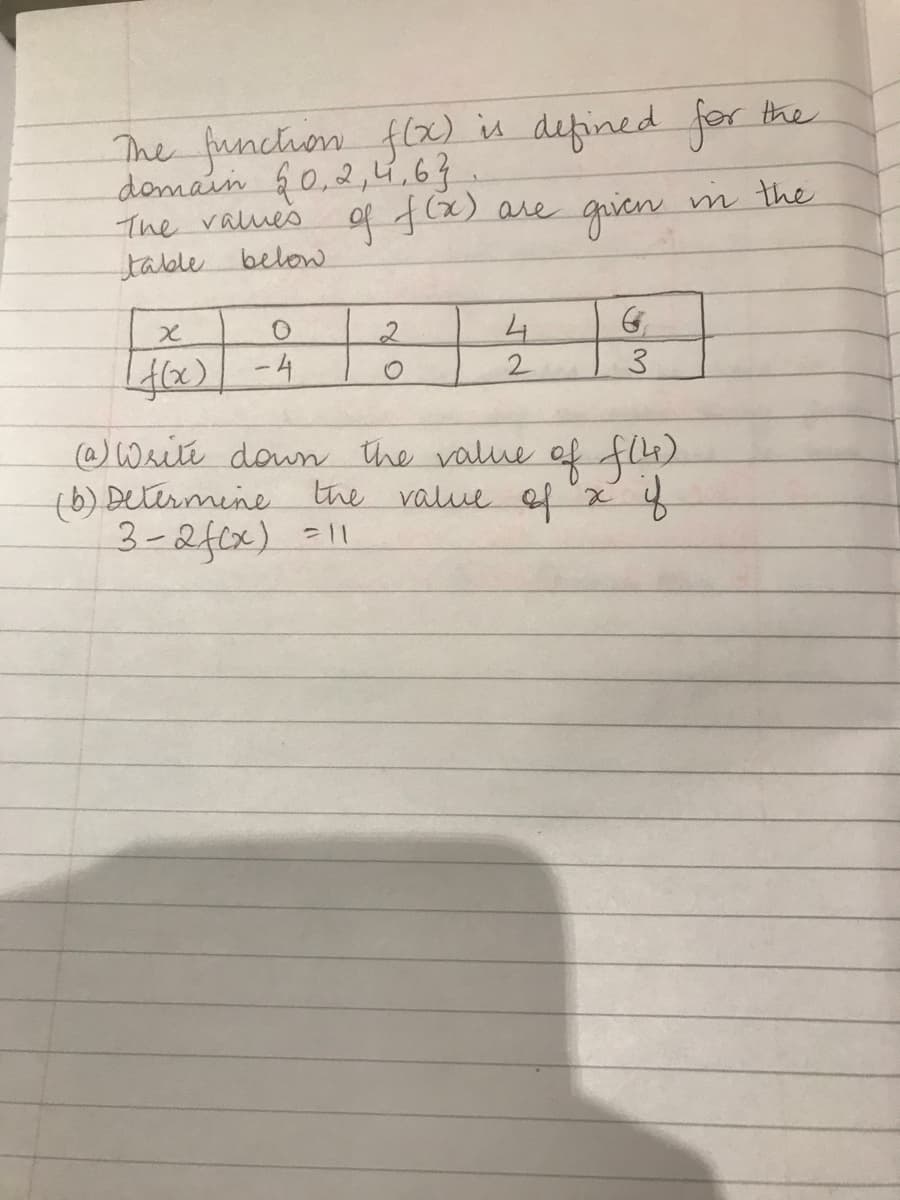 The function f(x) is defined for the
domain {0,2,4,6}.
The values of f(x) are given in the
table below
x 0 2 4 6
f(x) -4 0 2 3
(a) Write down the value of f(4)
(b) Determine the value of x if
3-2f(x) =11